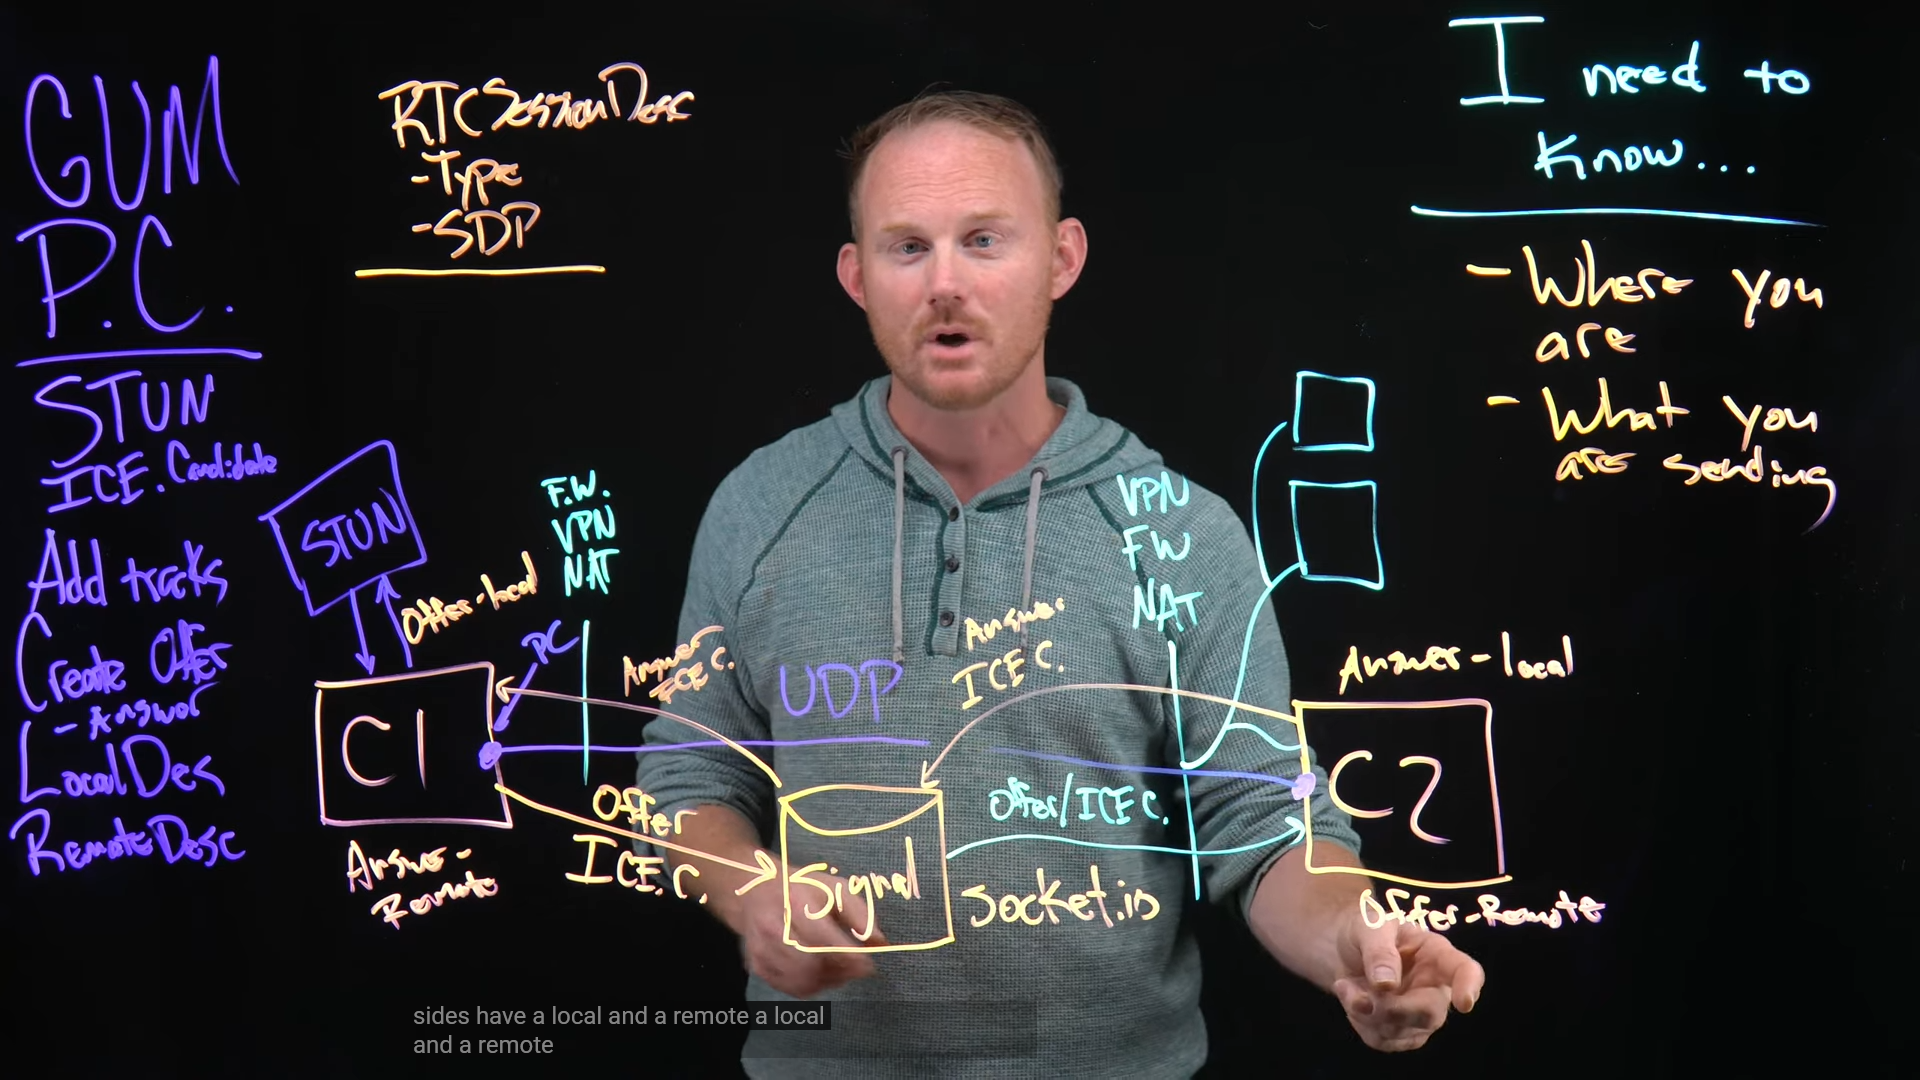 GUM
P.C.
STUN
ICE. Candidate
Add tracks
Create Offer
- Answer
LocalDesc
RemoteDesc
RTCSessionDesc
- Type
- SDP
I need to
know...
- Where you
are
- What you
are sending
STUN
Offer-local
PC
F.W.
VPN
NAT
Answer
ICE C.
UDP
Answer
ICE C.
VPN
FW
NAT
Answer-local
C1
Offer
ICE. C.
Signal
Offer/ICE C.
socket.io
C2
Answer-
Remote
Offer-Remote
sides have a local and a remote a local
and a remote